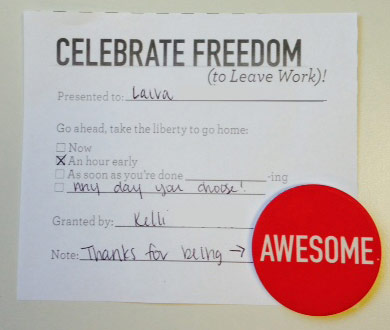 CELEBRATE FREEDOM
(to Leave Work)!
Presented to: Laura
Go ahead, take the liberty to go home:
☐ Now
☒ An hour early
☐ As soon as you're done ____________-ing
☐ any day you choose!
Granted by: Kelli
Note: Thanks for being →
AWESOME